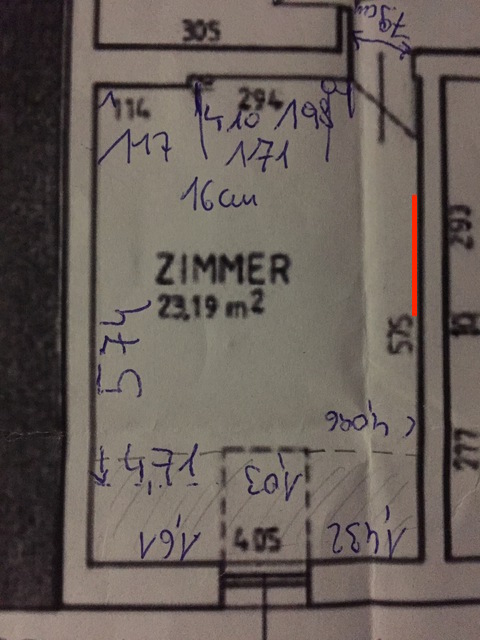 305
79cm
114
294
410 198
117
171
16cm
ZIMMER
23,19 m²
293
575
574
10
4,096
277
1,03
1,61
405
1,432